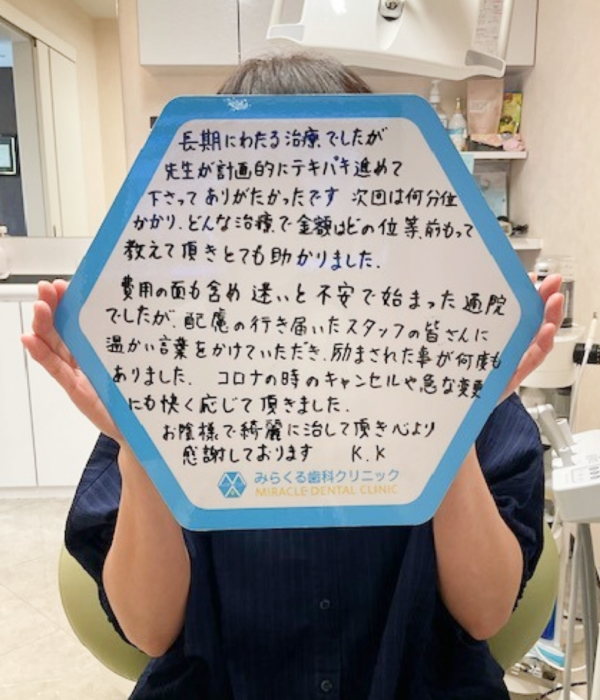 長期にわたる治療でしたが
先生が計画的にテキパキ進めて
下さってありがたかったです 次回は何分位
かかり、どんな治療で金額はどの位等、前もって
教えて頂きとても助かりました。
費用の面も含め 迷いと不安で始まった通院
でしたが、配慮の行き届いたスタッフの皆さんに
温かい言葉をかけていただき、励まされた事が何度も
ありました。 コロナの時のキャンセルや急な変更
にも快く応じて頂きました。
お陰様で綺麗に治して頂き心より
感謝しております K.K
みらくる歯科クリニック
MIRACLE DENTAL CLINIC